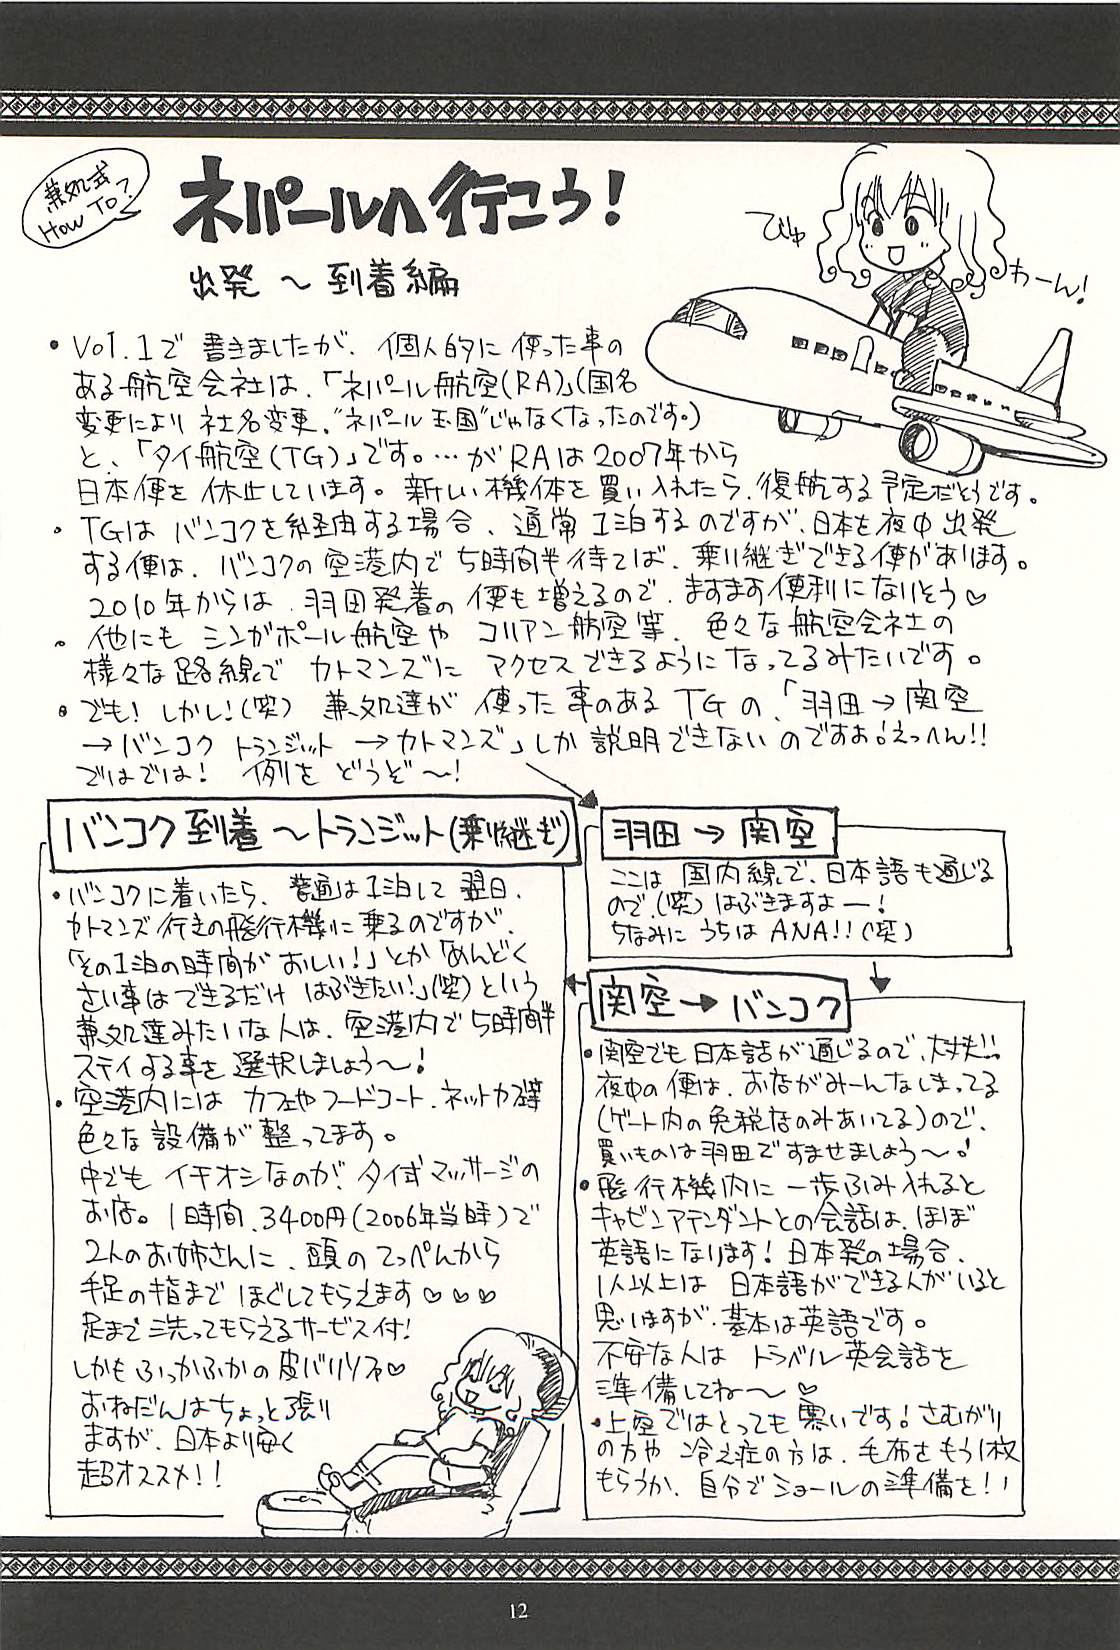 兼処式
HOW TO?
ネパールへ行こう!
出発 〜 到着編
びゅ
わーん!
・Vol.1で 書きましたが、個人的に 使った事の
ある航空会社は、「ネパール航空(RA)」(国名
変更により 社名変更。"ネパール王国"じゃなくなったのです。)
と、「タイ航空(TG)」です。…がRAは2007年から
日本便を休止しています。新しい機体を買い入れたら、復航する予定だそうです。
・TGは バンコクを経由する場合、通常1泊するのですが、日本を夜中出発
する便は、バンコクの空港内で5時間半待てば、乗り継ぎできる便があります。
2010年からは、羽田発着の便も増えるので、ますます便利になりそう♡
・他にも シンガポール航空や コリアン航空等、色々な航空会社の
様々な路線で カトマンズに アクセスできるようになってるみたいです。
・でも!しかし!(笑) 兼処達が 使った事のある TGの、「羽田→関空
→バンコク トランジット →カトマンズ」しか説明できないのですよ!えっへん!!
ではでは! 例を どうぞ〜!
羽田 → 関空
ここは 国内線で、日本語も通じる
ので、(笑)はぶきますよー!
ちなみに うちは ANA!!(笑)
関空 → バンコク
・関空でも 日本語が通じるので、大丈夫!!
夜中の便は、お店がみーんなしまってる
(ゲート内の免税店のみあいてる)ので、
買いものは羽田ですませましょう〜!
・飛行機内に 一歩ふみ入れると
キャビンアテンダントとの会話は、ほぼ
英語になります! 日本発の場合、
1人以上は 日本語ができる人がいると
思いますが、基本は英語です。
不安な人は トラベル英会話を
準備してね〜♡
・上空ではとっても寒いです!さむがり
の方や 冷え症の方は、毛布をもう1枚
もらうか、自分でショールの準備を!!
バンコク到着 〜トランジット(乗り継ぎ)
・バンコクに着いたら、普通は1泊して 翌日、
カトマンズ行きの飛行機に乗るのですが、
「その1泊の時間がおしい!」とか「めんどく
さい事はできるだけ はぶきたい!」(笑)という
兼処達みたいな人は、空港内で5時間半
ステイする事を選択しましょう〜!
・空港内には カフェやフードコート、ネットカフェ等
色々な設備が整ってます。
中でも イチオシなのが、タイ式マッサージの
お店。1時間、3400円(2006年当時)で
2人のお姉さんに、頭のてっぺんから
手足の指まで ほぐしてもらえます♡♡♡
足まで洗ってもらえるサービス付!
しかもふっかふかの皮バリソファ♡
おねだんはちょっと張り
ますが、日本より安く
超オススメ!!
12